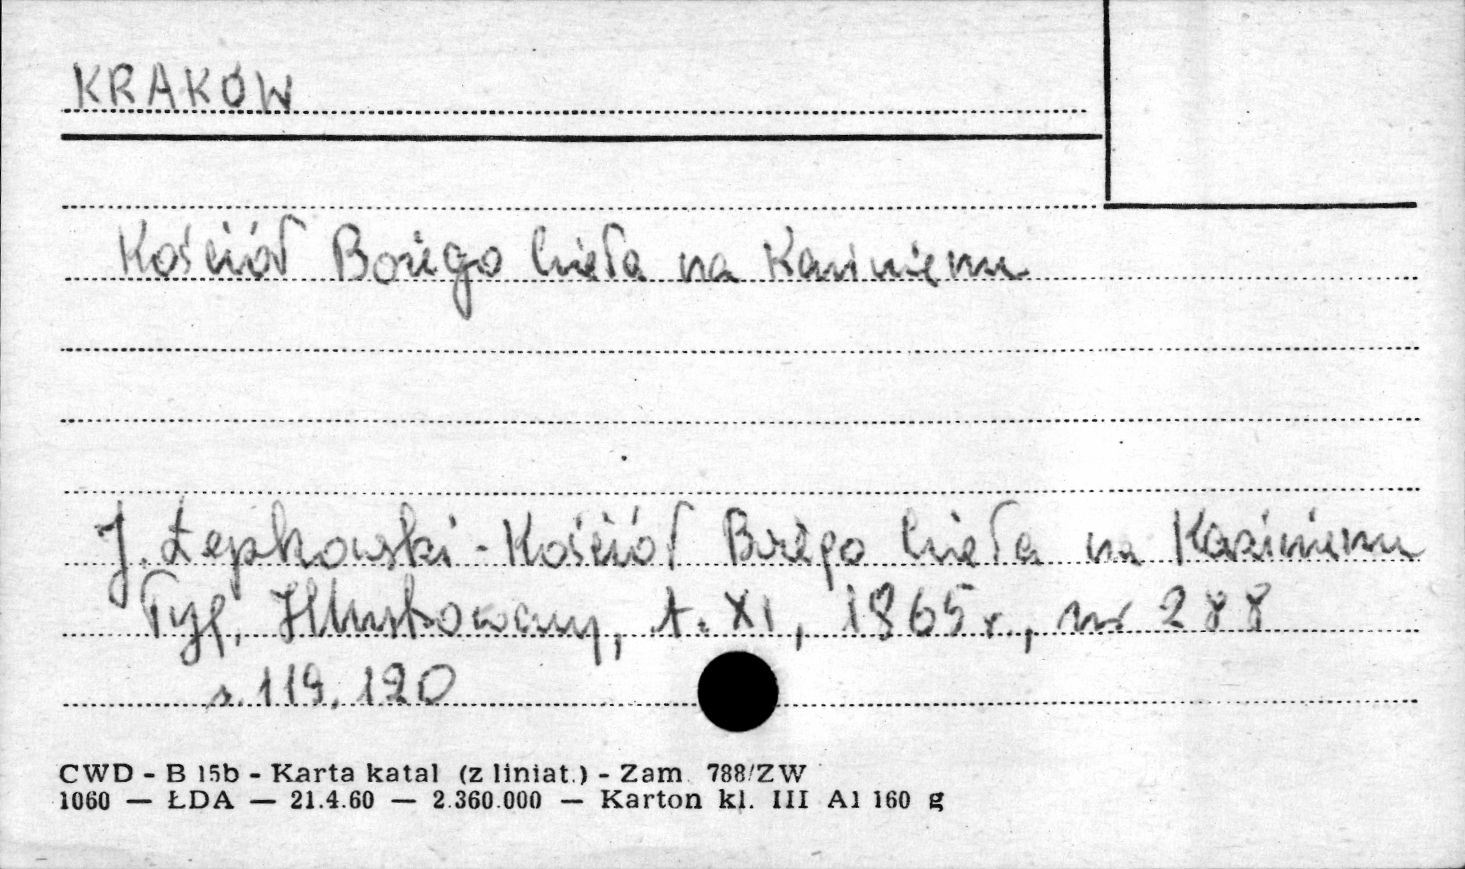 KRAKÓW
Kościół Bożego Ciała na Kazimierzu
J. Łepkowski - Kościół Bożego Ciała na Kazimierzu
Tyg. Illustrowany, t. XI, 1865 r., nr 288
s. 119, 120
CWD - B 15b - Karta katal (z liniat.) - Zam 788/ZW
1060 — ŁDA — 21.4.60 — 2.360.000 — Karton kl. III A1 160 g